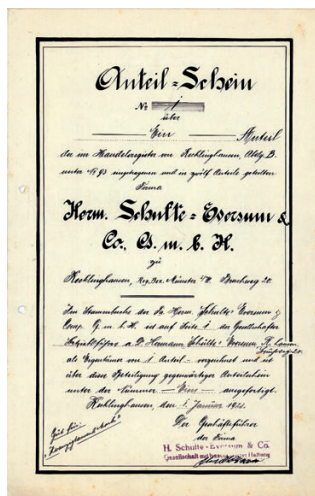 Anteil=Schein
No 1
über
Ein Anteil
der im Handelsregister von Recklinghausen, Abtlg. B.
unter No 93 eingetragenen und in zwölf Anteile geteilten
Firma
Herm. Schulte=Eversum &
Co. G. m. b. H.
zu
Recklinghausen, Reg. Bez. Münster i/W.
Im Stammbuche der Fa. Herm. Schulte=Eversum &
Comp. G. m. b. H. ist auf Seite 1 der Gesellschafter
a. D. Hermann Schulte=Eversum
als Eigentümer von 1 Anteil verzeichnet und
über diese Beteiligung gegenwärtiger Anteilschein
unter der Nummer Eins ausgefertigt.
Recklinghausen, den 1. Januar
Der Geschäftsführer
der Firma
H. Schulte-Eversum & Co.
Gesellschaft mit beschränkter Haftung
Gut für: